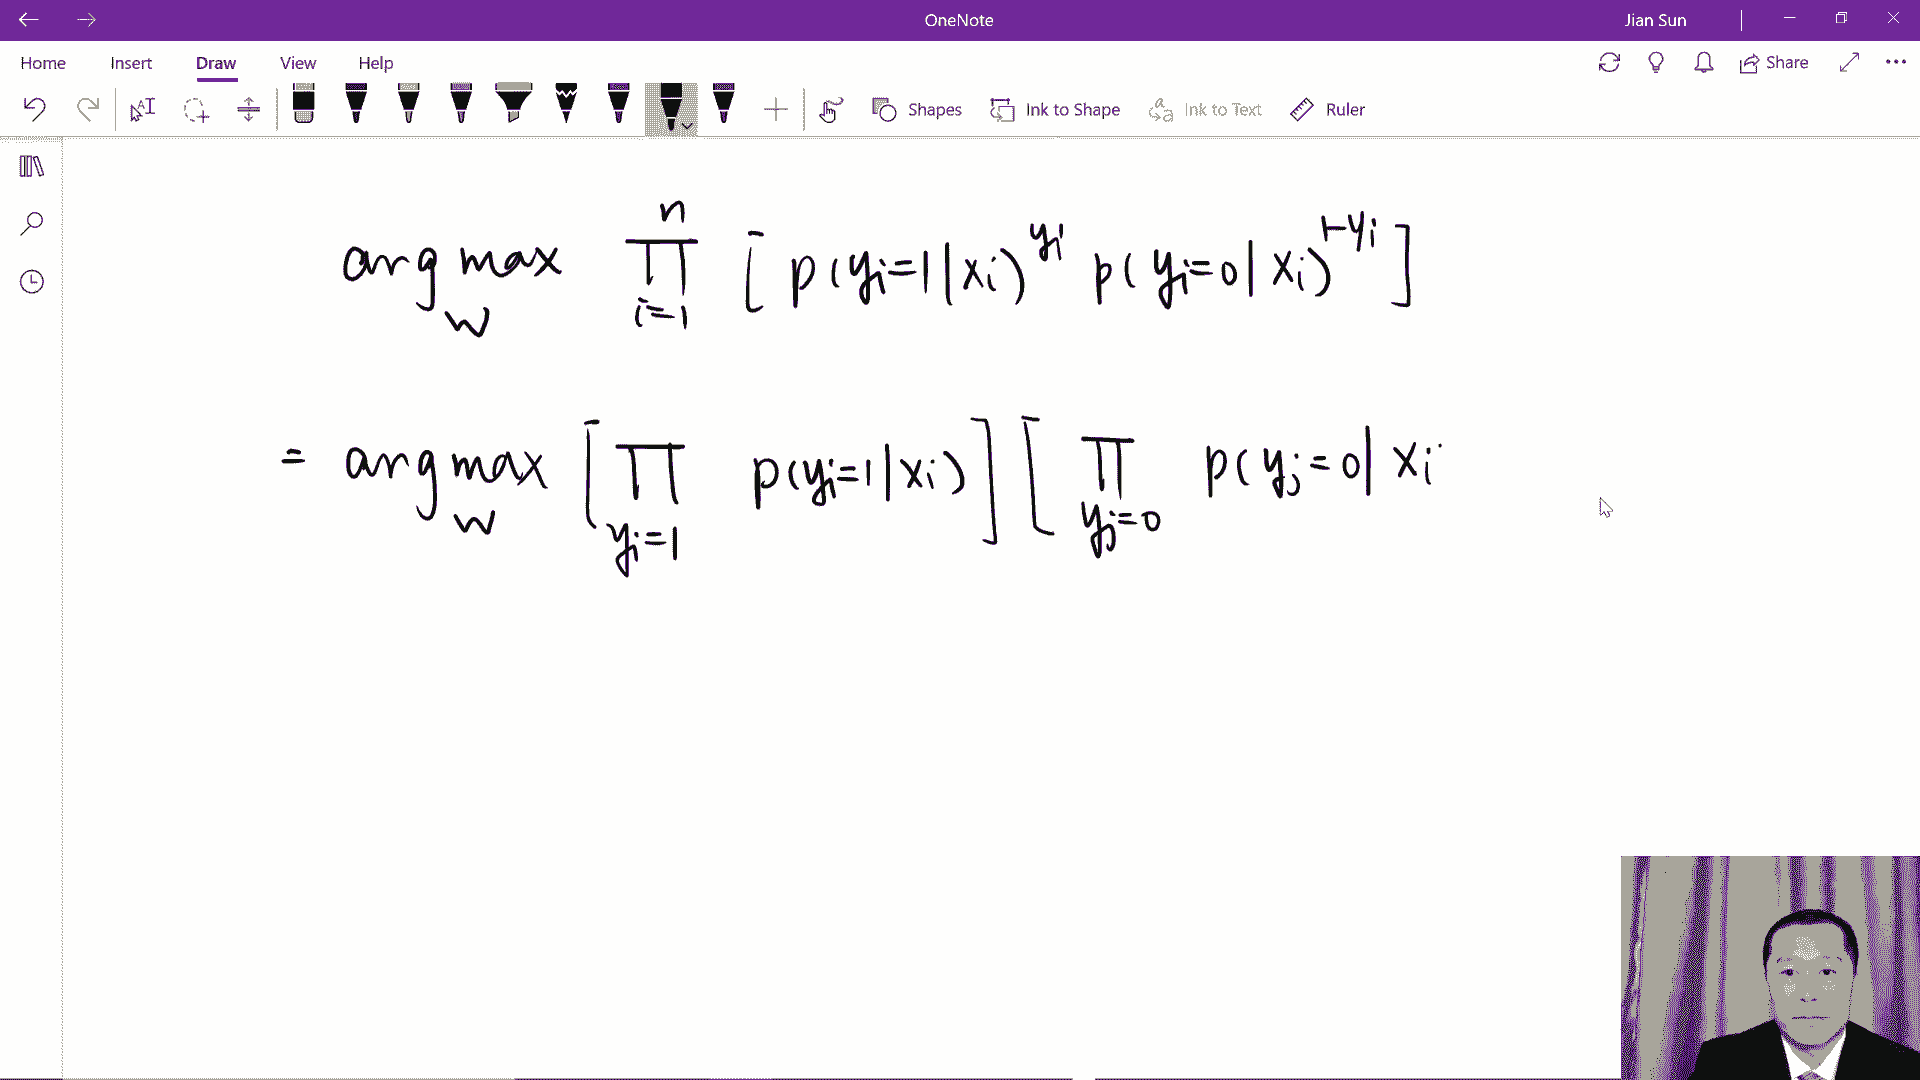 OneNote
Jian Sun
Home Insert Draw View Help
Share
Shapes Ink to Shape Ink to Text Ruler
arg max_w ∏_{i=1}^{n} [ p(y_i=1|x_i)^{y_i} p(y_i=0|x_i)^{1-y_i} ]
= arg max_w [ ∏_{y_i=1} p(y_i=1|x_i) ] [ ∏_{y_j=0} p(y_j=0|x_i